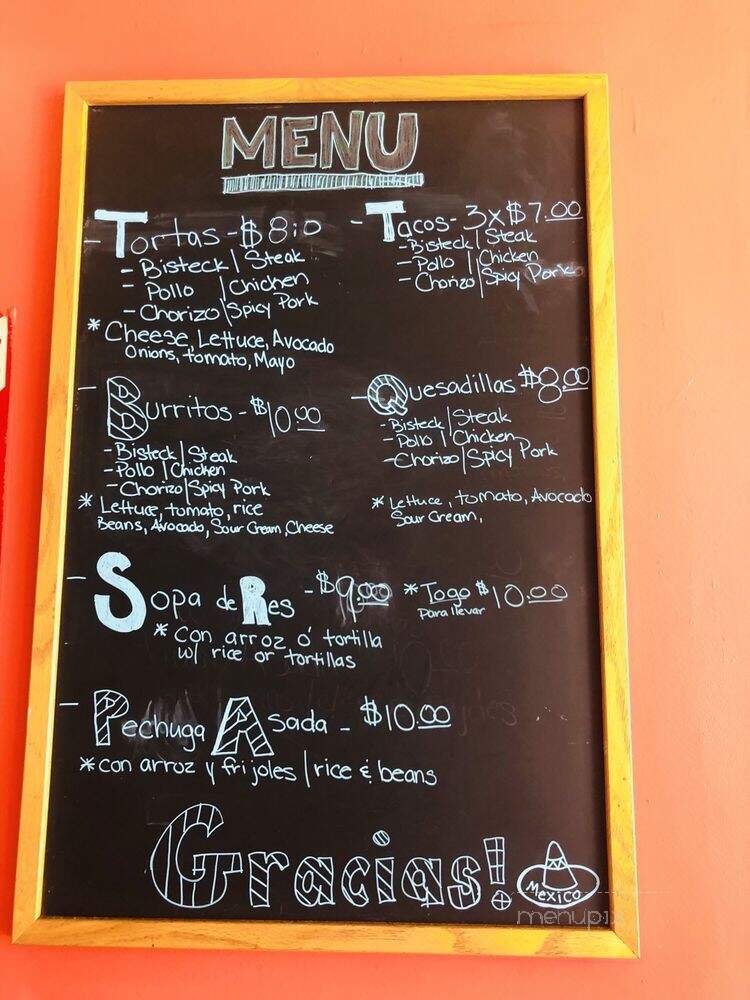 MENU
- Tortas - $8:0
- Bisteck | Steak
- Pollo | Chicken
- Chorizo | Spicy Pork
* Cheese, Lettuce, Avocado
Onions, tomato, Mayo
- Tacos - 3x$7.00
- Bisteck | Steak
- Pollo | Chicken
- Chorizo | Spicy Pork
- Burritos - $10.00
- Bisteck | Steak
- Pollo | Chicken
- Chorizo | Spicy Pork
* Lettuce, tomato, rice
Beans, Avocado, Sour Cream, Cheese
- Quesadillas $8.00
- Bisteck | Steak
- Pollo | Chicken
- Chorizo | Spicy Pork
* Lettuce, tomato, Avocado
Sour Cream,
- Sopa de Res - $9.00 * Togo $10.00
Para llevar
* con arroz o' tortilla
w/ rice or tortillas
- Pechuga Asada - $10.00
* con arroz y frijoles | rice & beans
Gracias!
Mexico
menupix